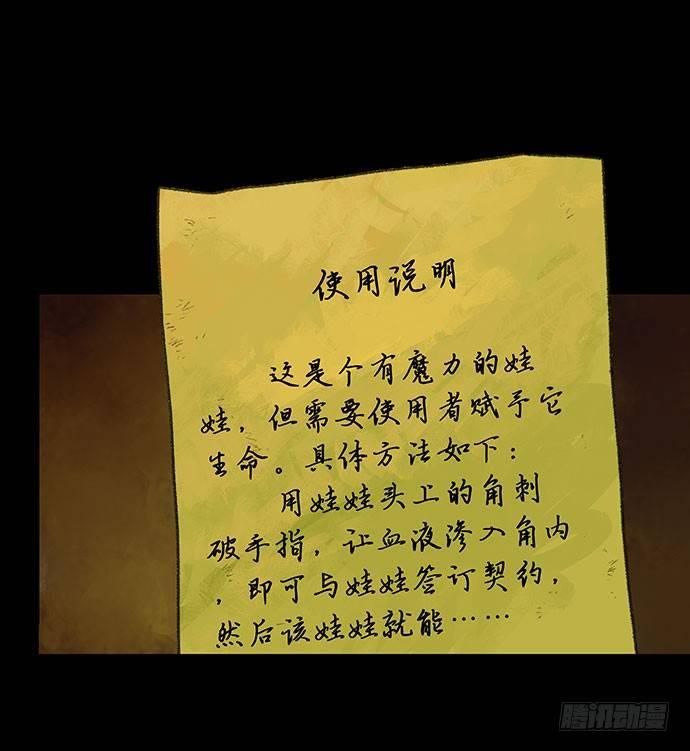 使用说明
这是个有魔力的娃
娃，但需要使用者赋予它
生命。具体方法如下：
用娃娃头上的角刺
破手指，让血液渗入角内
，即可与娃娃签订契约，
然后该娃娃就能……
腾讯动漫